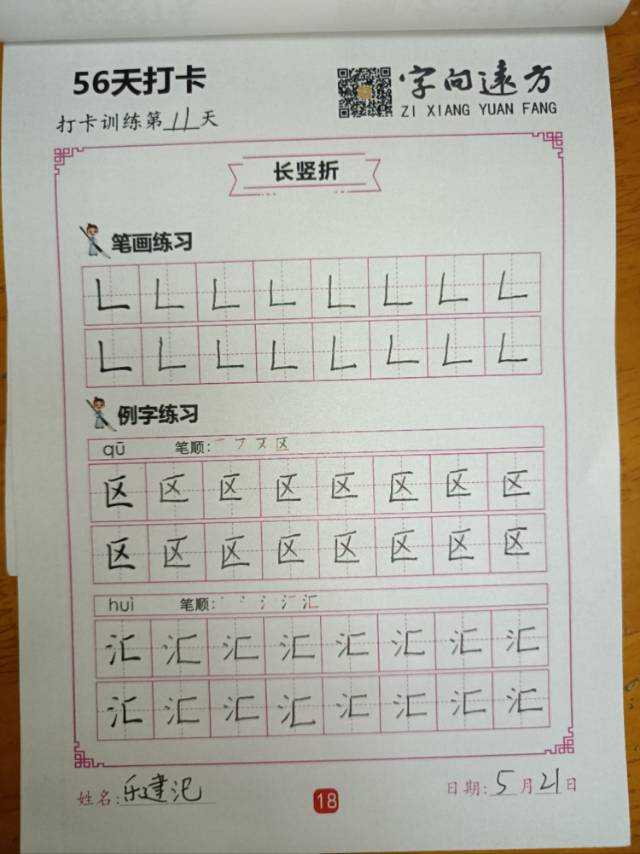 56天打卡
字向遠方
ZI XIANG YUAN FANG
打卡训练第11天
长竖折
笔画练习
例字练习
qū 笔顺: 一 フ 又 区
区 区 区 区 区 区 区 区
区 区 区 区 区 区 区 区
huì 笔顺: 汇
汇 汇 汇 汇 汇 汇 汇 汇
汇 汇 汇 汇 汇 汇 汇 汇
姓名: 乐建
18
日期: 5月21日